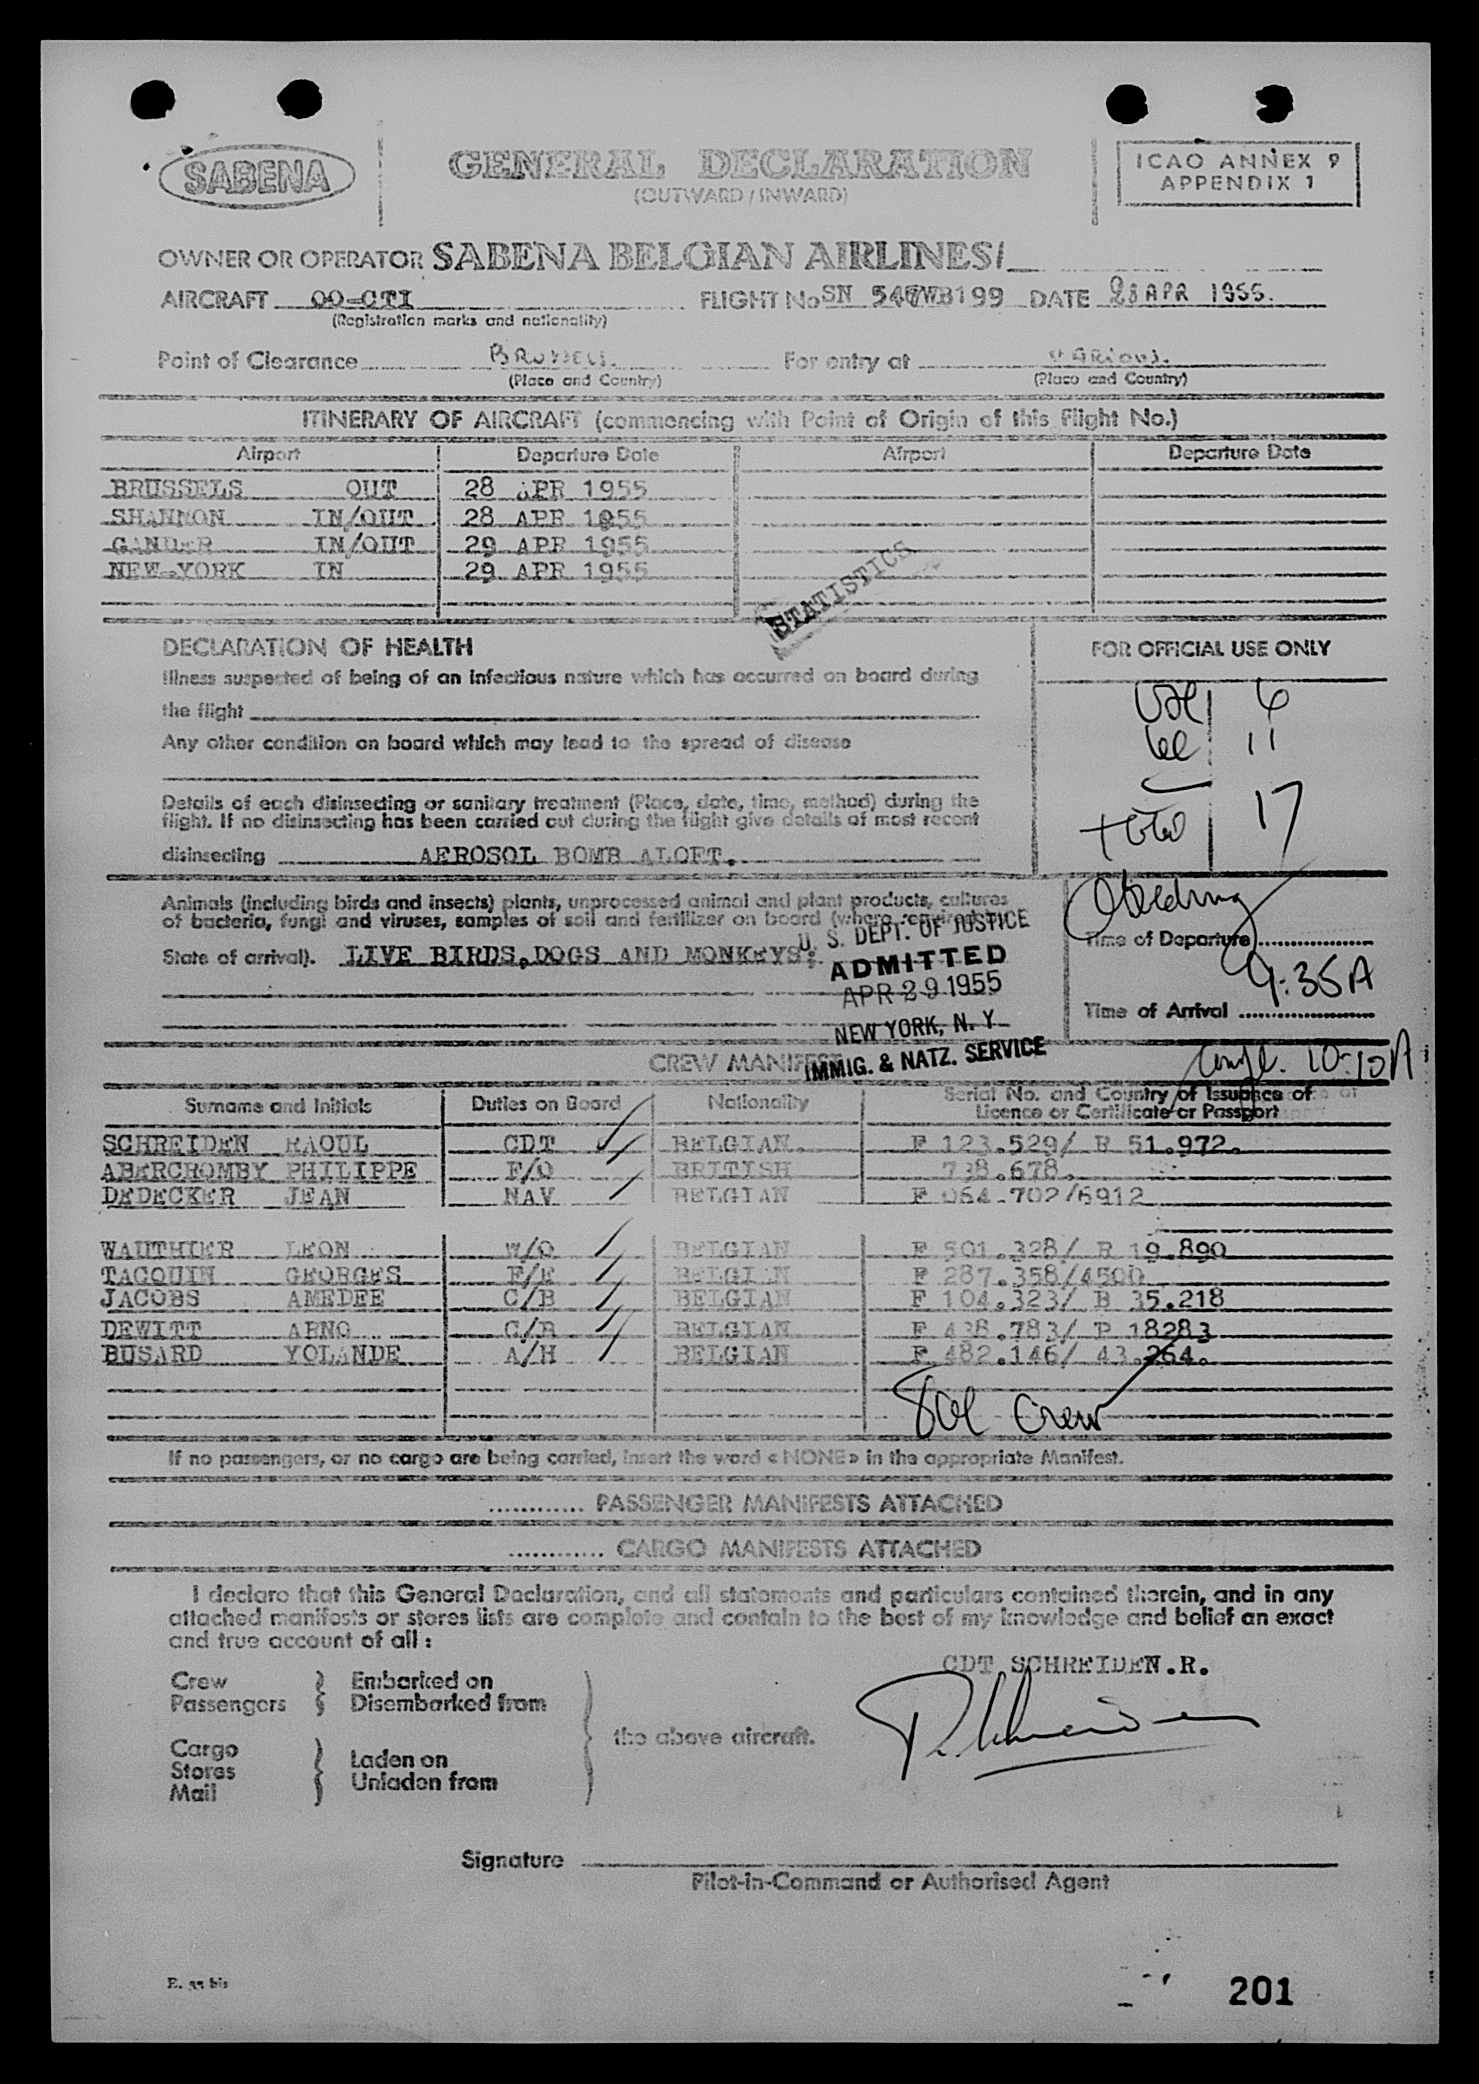 SABENA
GENERAL DECLARATION
(OUTWARD / INWARD)
ICAO ANNEX 9
APPENDIX 1
OWNER OR OPERATOR SABENA BELGIAN AIRLINES/
AIRCRAFT OO-CTI FLIGHT No SN DATE 28 APR 1955.
(Registration marks and nationality)
Point of Clearance For entry at
(Place and Country) (Place and Country)
ITINERARY OF AIRCRAFT (commencing with Point of Origin of this Flight No.)
Airport Departure Date Airport Departure Date
BRUSSELS OUT 28 APR 1955
SHANNON IN/OUT 28 APR 1955
GANDER IN/OUT 29 APR 1955
NEW-YORK IN 29 APR 1955
STATISTICS
DECLARATION OF HEALTH
Illness suspected of being of an infectious nature which has occurred on board during
the flight
Any other condition on board which may lead to the spread of disease
Details of each disinsecting or sanitary treatment (Place, date, time, method) during the
flight. If no disinsecting has been carried out during the flight give details of most recent
disinsecting AEROSOL BOMB ALOFT.
FOR OFFICIAL USE ONLY
USC 6
11
total 17
Animals (including birds and insects) plants, unprocessed animal and plant products, cultures
of bacteria, fungi and viruses, samples of soil and fertilizer on board (where required by
State of arrival). LIVE BIRDS,DOGS AND MONKEYS.
U. S. DEPT. OF JUSTICE
ADMITTED
APR 29 1955
NEW YORK, N. Y.
IMMIG. & NATZ. SERVICE
Time of Departure
9:35A
Time of Arrival
10:10A
CREW MANIFEST
Surname and Initials Duties on Board Nationality Serial No. and Country of Issuance of
Licence or Certificate or Passport
SCHREIDEN RAOUL CDT BELGIAN. F 123.529/ B 51.972.
ABERCROMBY PHILIPPE F/O BRITISH 738.678.
DEDECKER JEAN NAV BELGIAN F 064.702/6912
WAUTHIER LEON W/O BELGIAN F 501.328/ B 19.890
TACQUIN GEORGES F/E BELGIAN F 287.358/4500
JACOBS AMEDEE C/B BELGIAN F 104.323/ B 35.218
DEWITT ARNO C/B BELGIAN F 438.783/ P 18283
BUSARD YOLANDE A/H BELGIAN F 482.146/ 43.264.
Crew
If no passengers, or no cargo are being carried, insert the word « NONE » in the appropriate Manifest.
............ PASSENGER MANIFESTS ATTACHED
............ CARGO MANIFESTS ATTACHED
I declare that this General Declaration, and all statements and particulars contained therein, and in any
attached manifests or stores lists are complete and contain to the best of my knowledge and belief an exact
and true account of all :
CDT SCHREIDEN.R.
Crew
Passengers
Embarked on
Disembarked from
Cargo
Stores
Mail
Laden on
Unladen from
the above aircraft.
Signature
Pilot-in-Command or Authorised Agent
201